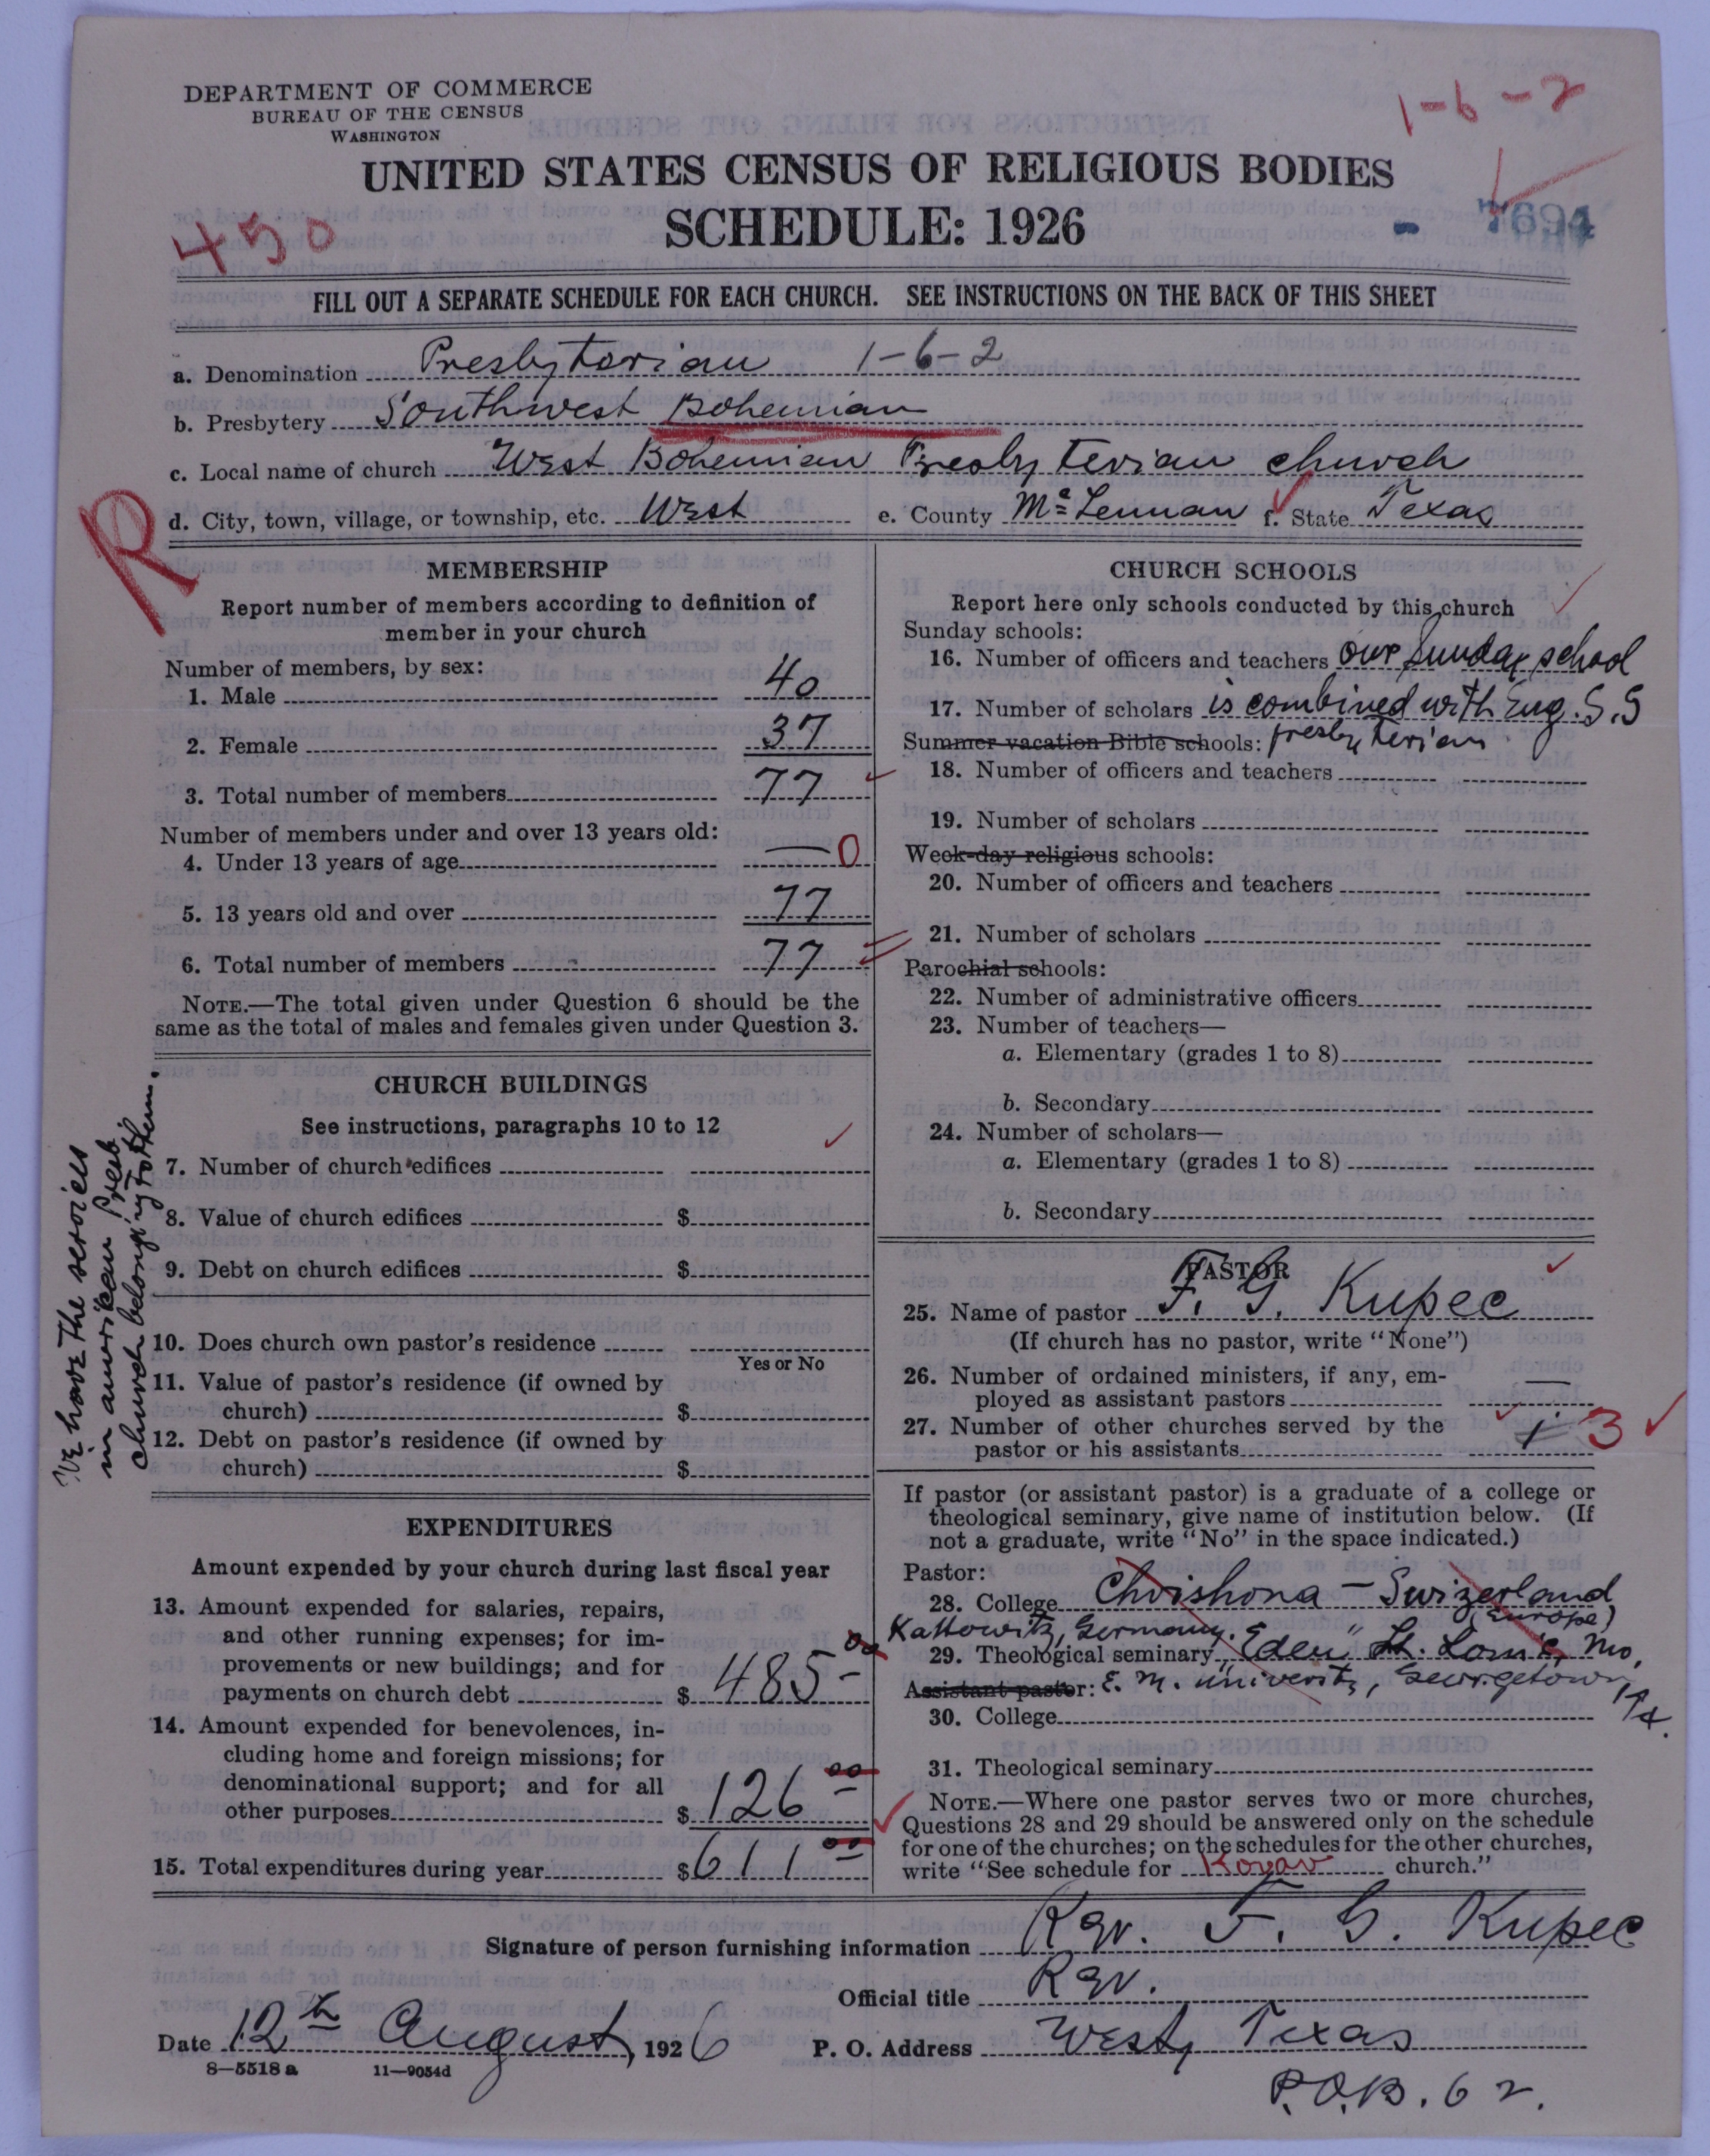 DEPARTMENT OF COMMERCE
BUREAU OF THE CENSUS
WASHINGTON
1-6-2
UNITED STATES CENSUS OF RELIGIOUS BODIES
450
SCHEDULE: 1926
- 7694
FILL OUT A SEPARATE SCHEDULE FOR EACH CHURCH. SEE INSTRUCTIONS ON THE BACK OF THIS SHEET
a. Denomination Presbyterian 1-6-2
b. Presbytery Southwest Bohemian
c. Local name of church West Bohemian Presbyterian church
R
d. City, town, village, or township, etc. West e. County Mc Lennan f. State Texas
MEMBERSHIP
Report number of members according to definition of
member in your church
Number of members, by sex:
1. Male 40
2. Female 37
3. Total number of members 77
Number of members under and over 13 years old:
4. Under 13 years of age — 0
5. 13 years old and over 77
6. Total number of members 77
NOTE.—The total given under Question 6 should be the
same as the total of males and females given under Question 3.
CHURCH BUILDINGS
See instructions, paragraphs 10 to 12
7. Number of church edifices
8. Value of church edifices $
9. Debt on church edifices $
10. Does church own pastor's residence
Yes or No
11. Value of pastor's residence (if owned by
church) $
12. Debt on pastor's residence (if owned by
church) $
We have the services
in american Presb.
church belonging to them.
EXPENDITURES
Amount expended by your church during last fiscal year
13. Amount expended for salaries, repairs,
and other running expenses; for im-
provements or new buildings; and for
payments on church debt $ 485-00
14. Amount expended for benevolences, in-
cluding home and foreign missions; for
denominational support; and for all
other purposes $ 126 00
15. Total expenditures during year $ 611 00
CHURCH SCHOOLS
Report here only schools conducted by this church
Sunday schools:
16. Number of officers and teachers our Sunday school
17. Number of scholars is combined with Eng. S.S
Summer vacation Bible schools: presbyterian
18. Number of officers and teachers
19. Number of scholars
Week-day religious schools:
20. Number of officers and teachers
21. Number of scholars
Parochial schools:
22. Number of administrative officers
23. Number of teachers—
a. Elementary (grades 1 to 8)
b. Secondary
24. Number of scholars—
a. Elementary (grades 1 to 8)
b. Secondary
PASTOR
25. Name of pastor F. G. Kupec
(If church has no pastor, write "None")
26. Number of ordained ministers, if any, em-
ployed as assistant pastors —
27. Number of other churches served by the
pastor or his assistants 1 3
If pastor (or assistant pastor) is a graduate of a college or
theological seminary, give name of institution below. (If
not a graduate, write "No" in the space indicated.)
Pastor:
28. College Chrishona - Swizerland
(Europe)
Kattowitz, Germany.
29. Theological seminary "Eden" St. Louis, Mo.
Assistant pastor: E. M. University, Georgetown
30. College
31. Theological seminary
NOTE.—Where one pastor serves two or more churches,
Questions 28 and 29 should be answered only on the schedule
for one of the churches; on the schedules for the other churches,
write "See schedule for church."
Signature of person furnishing information Rev. F. G. Kupec
Official title Rev.
Date 12th August, 1926 P. O. Address West, Texas
8—5518 a 11—9054d
P.O.B. 62.